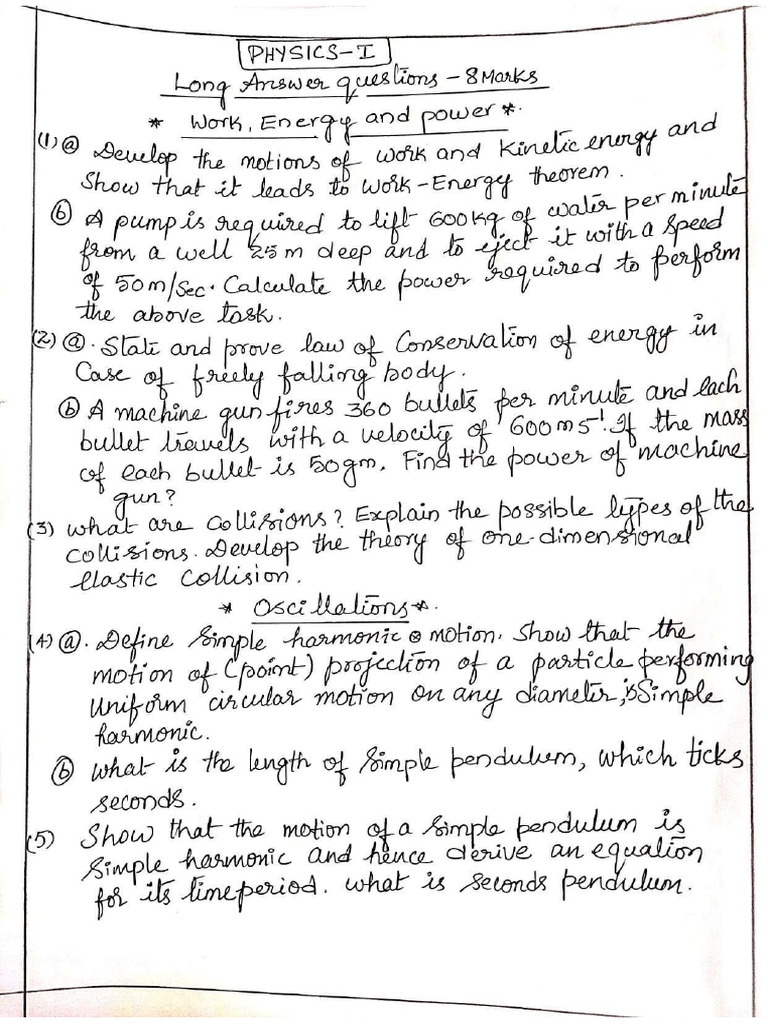 PHYSICS-I
Long Answer questions - 8 Marks
* Work, Energy and power *.
(1) ⓐ Develop the motions of work and Kinetic energy and
Show that it leads to Work-Energy theorem.
ⓑ A pump is required to lift 600kg of water per minute
from a well 25m deep and to eject it with a speed
of 50m/sec. Calculate the power required to perform
the above task.
(2) ⓐ. State and prove law of Conservation of energy in
Case of freely falling body.
ⓑ A machine gun fires 360 bullets per minute and each
bullet travels with a velocity of 600ms⁻¹. If the mass
of each bullet is 50gm. Find the power of machine
gun?
(3) What are collisions? Explain the possible types of the
collisions. Develop the theory of one-dimensional
elastic collision.
* Oscillations *.
(4) ⓐ. Define Simple harmonic motion. Show that the
motion of (point) projection of a particle performing
Uniform circular motion on any diameter, is Simple
harmonic.
ⓑ What is the length of Simple pendulum, which ticks
seconds.
(5) Show that the motion of a Simple pendulum is
Simple harmonic and hence derive an equation
for its timeperiod. What is seconds pendulum.